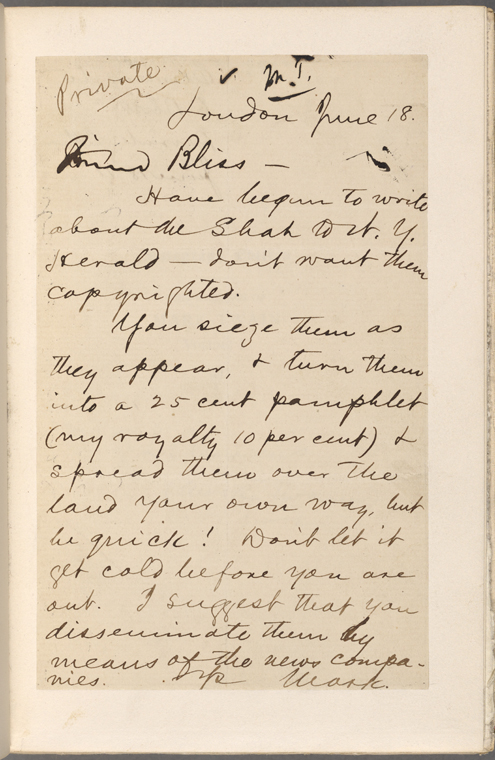 Private M.T.
London June 18.
Friend Bliss —
Have begun to write
about the Shah to N. Y.
Herald — don't want them
copyrighted.
You sieze them as
they appear, & turn them
into a 25 cent pamphlet
(my royalty 10 per cent) &
spread them over the
land your own way, but
be quick! Don't let it
get cold before you are
out. I suggest that you
disseminate them by
means of the news compa-
nies. Mark.